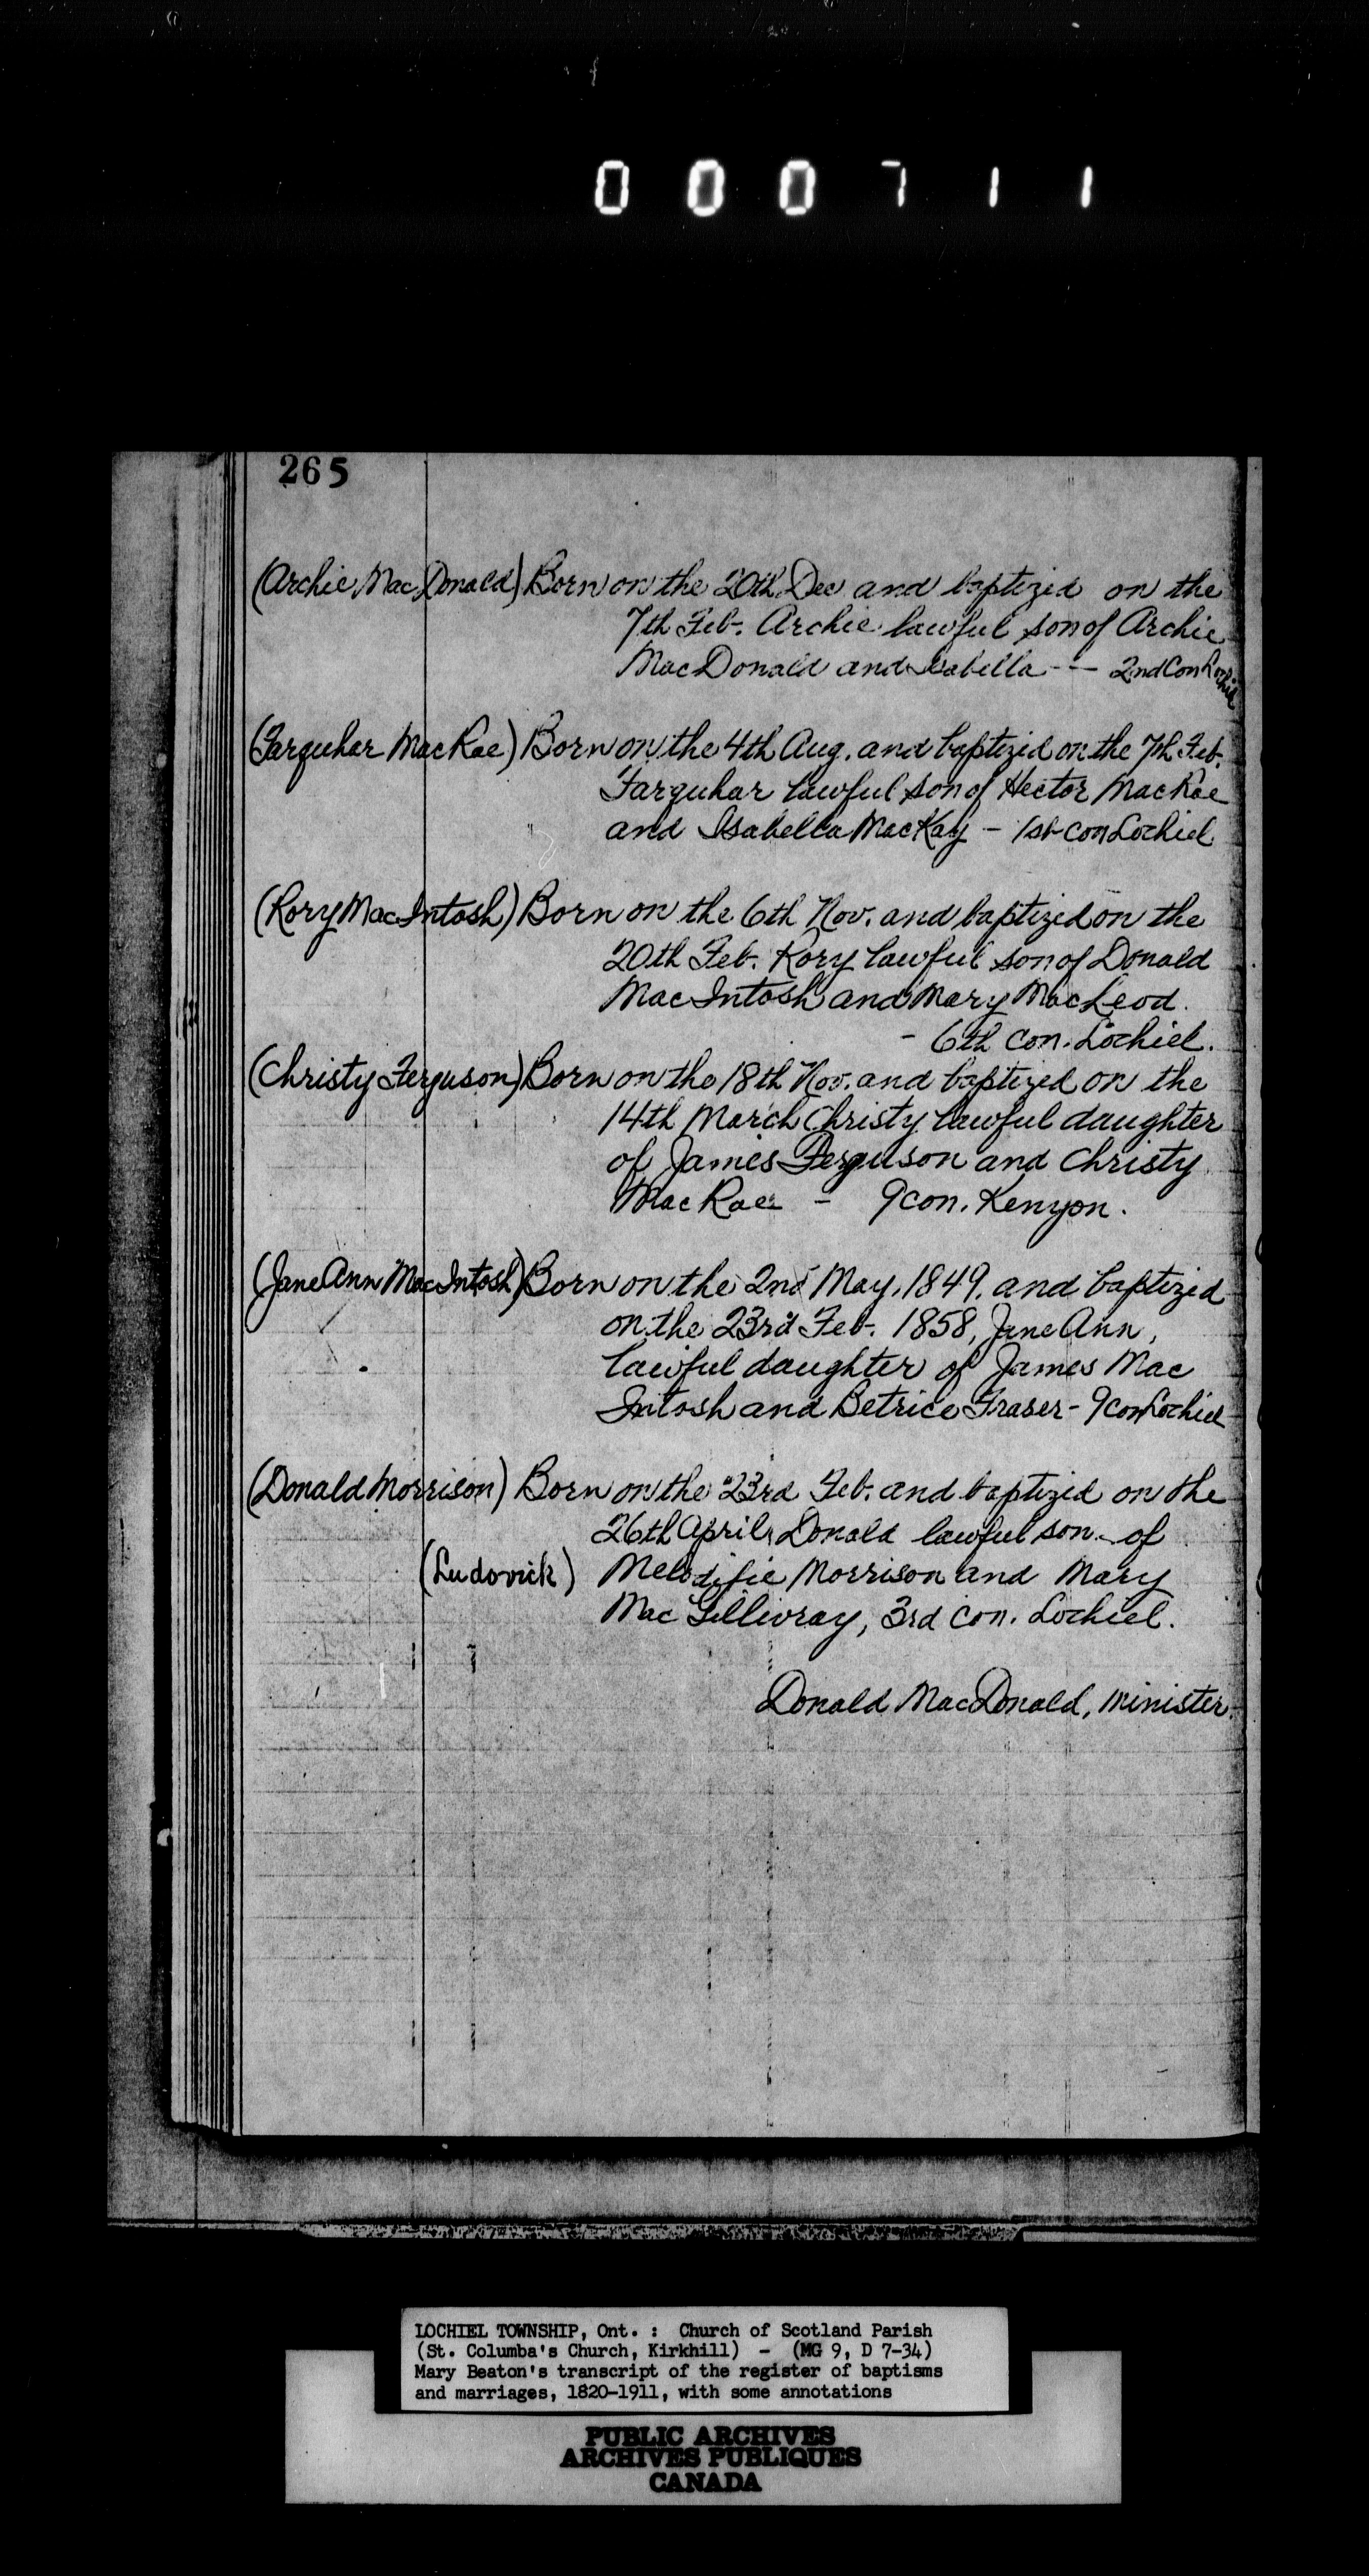 000711
265
(Archie MacDonald) Born on the 20th Dec and baptized on the
7th Feb. Archie lawful son of Archie
MacDonald and Isabella -- 2nd Con Lochiel
(Farquhar MacRae) Born on the 4th Aug. and baptized on the 7th Feb.
Farquhar lawful son of Hector MacRae
and Isabella MacKay - 1st con Lochiel
(Rory MacIntosh) Born on the 6th Nov. and baptized on the
20th Feb. Rory lawful son of Donald
MacIntosh and Mary MacLeod.
- 6th Con. Lochiel.
(Christy Ferguson) Born on the 18th Nov. and baptized on the
14th March Christy lawful daughter
of James Ferguson and Christy
MacRae - 9 con. Kenyon.
(Jane Ann MacIntosh) Born on the 2nd May, 1849, and baptized
on the 23rd Feb. 1858, Jane Ann,
lawful daughter of James Mac
Intosh and Betrice Fraser - 9 con Lochiel
(Donald Morrison) Born on the 23rd Feb. and baptized on the
26th April, Donald lawful son of
(Ludovick) Melodifie Morrison and Mary
MacGillivray, 3rd Con. Lochiel.
Donald MacDonald, Minister.
LOCHIEL TOWNSHIP, Ont. : Church of Scotland Parish
(St. Columba's Church, Kirkhill) - (MG 9, D 7-34)
Mary Beaton's transcript of the register of baptisms
and marriages, 1820-1911, with some annotations
PUBLIC ARCHIVES
ARCHIVES PUBLIQUES
CANADA